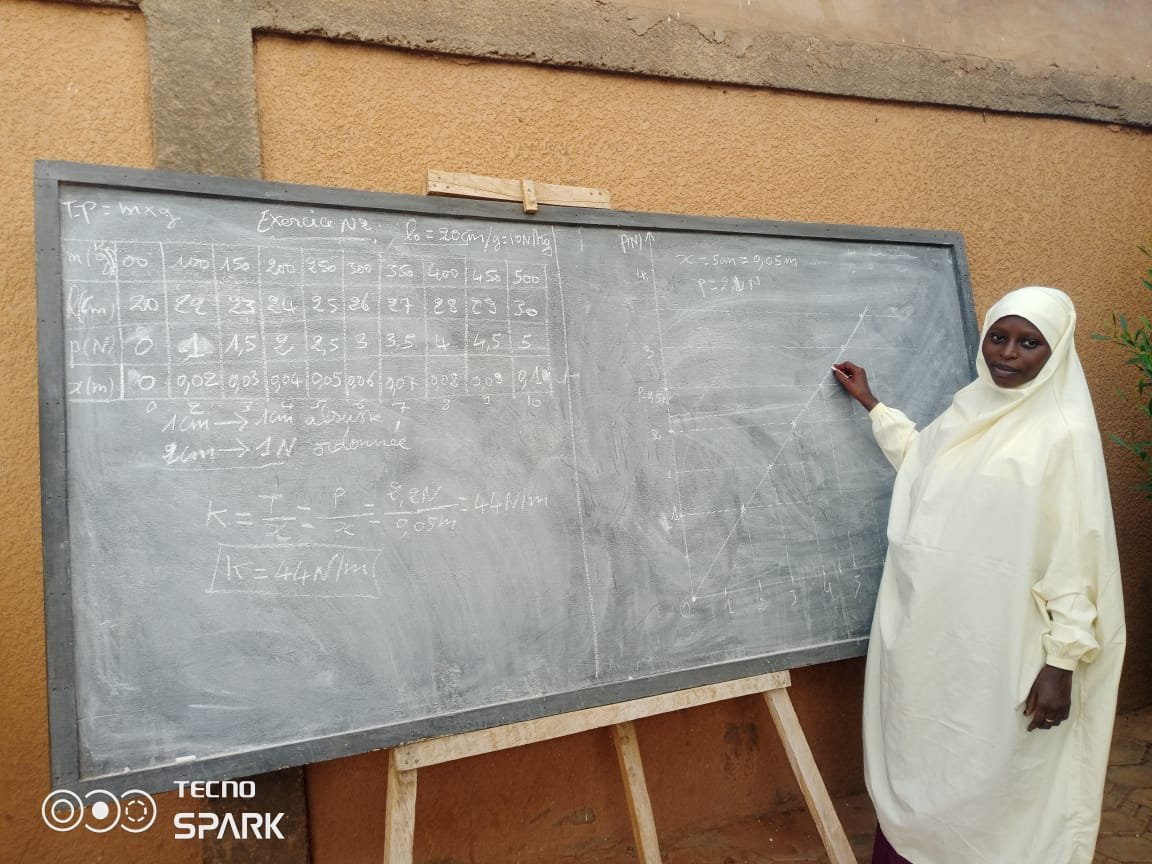 T=P = m×g
Exercice N°2
l₀ = 20cm/g=10N/kg
m(g) 00 100 150 200 250 300 350 400 450 500
l(cm) 20 22 23 24 25 26 27 28 29 30
p(N) 0 1 1,5 2 2,5 3 3,5 4 4,5 5
x(m) 0 0,02 0,03 0,04 0,05 0,06 0,07 0,08 0,09 0,10
0 2 3 4 5 6 7 8 9 10
1cm → 1cm abscisse
2cm → 1N ordonnée
K = T/x = P/x = 2,2N/0,05m = 44N/m
K = 44N/m
P(N)
x = 5cm = 0,05m
4
3
2
1
0 1 2 3 4 5
TECNO
SPARK